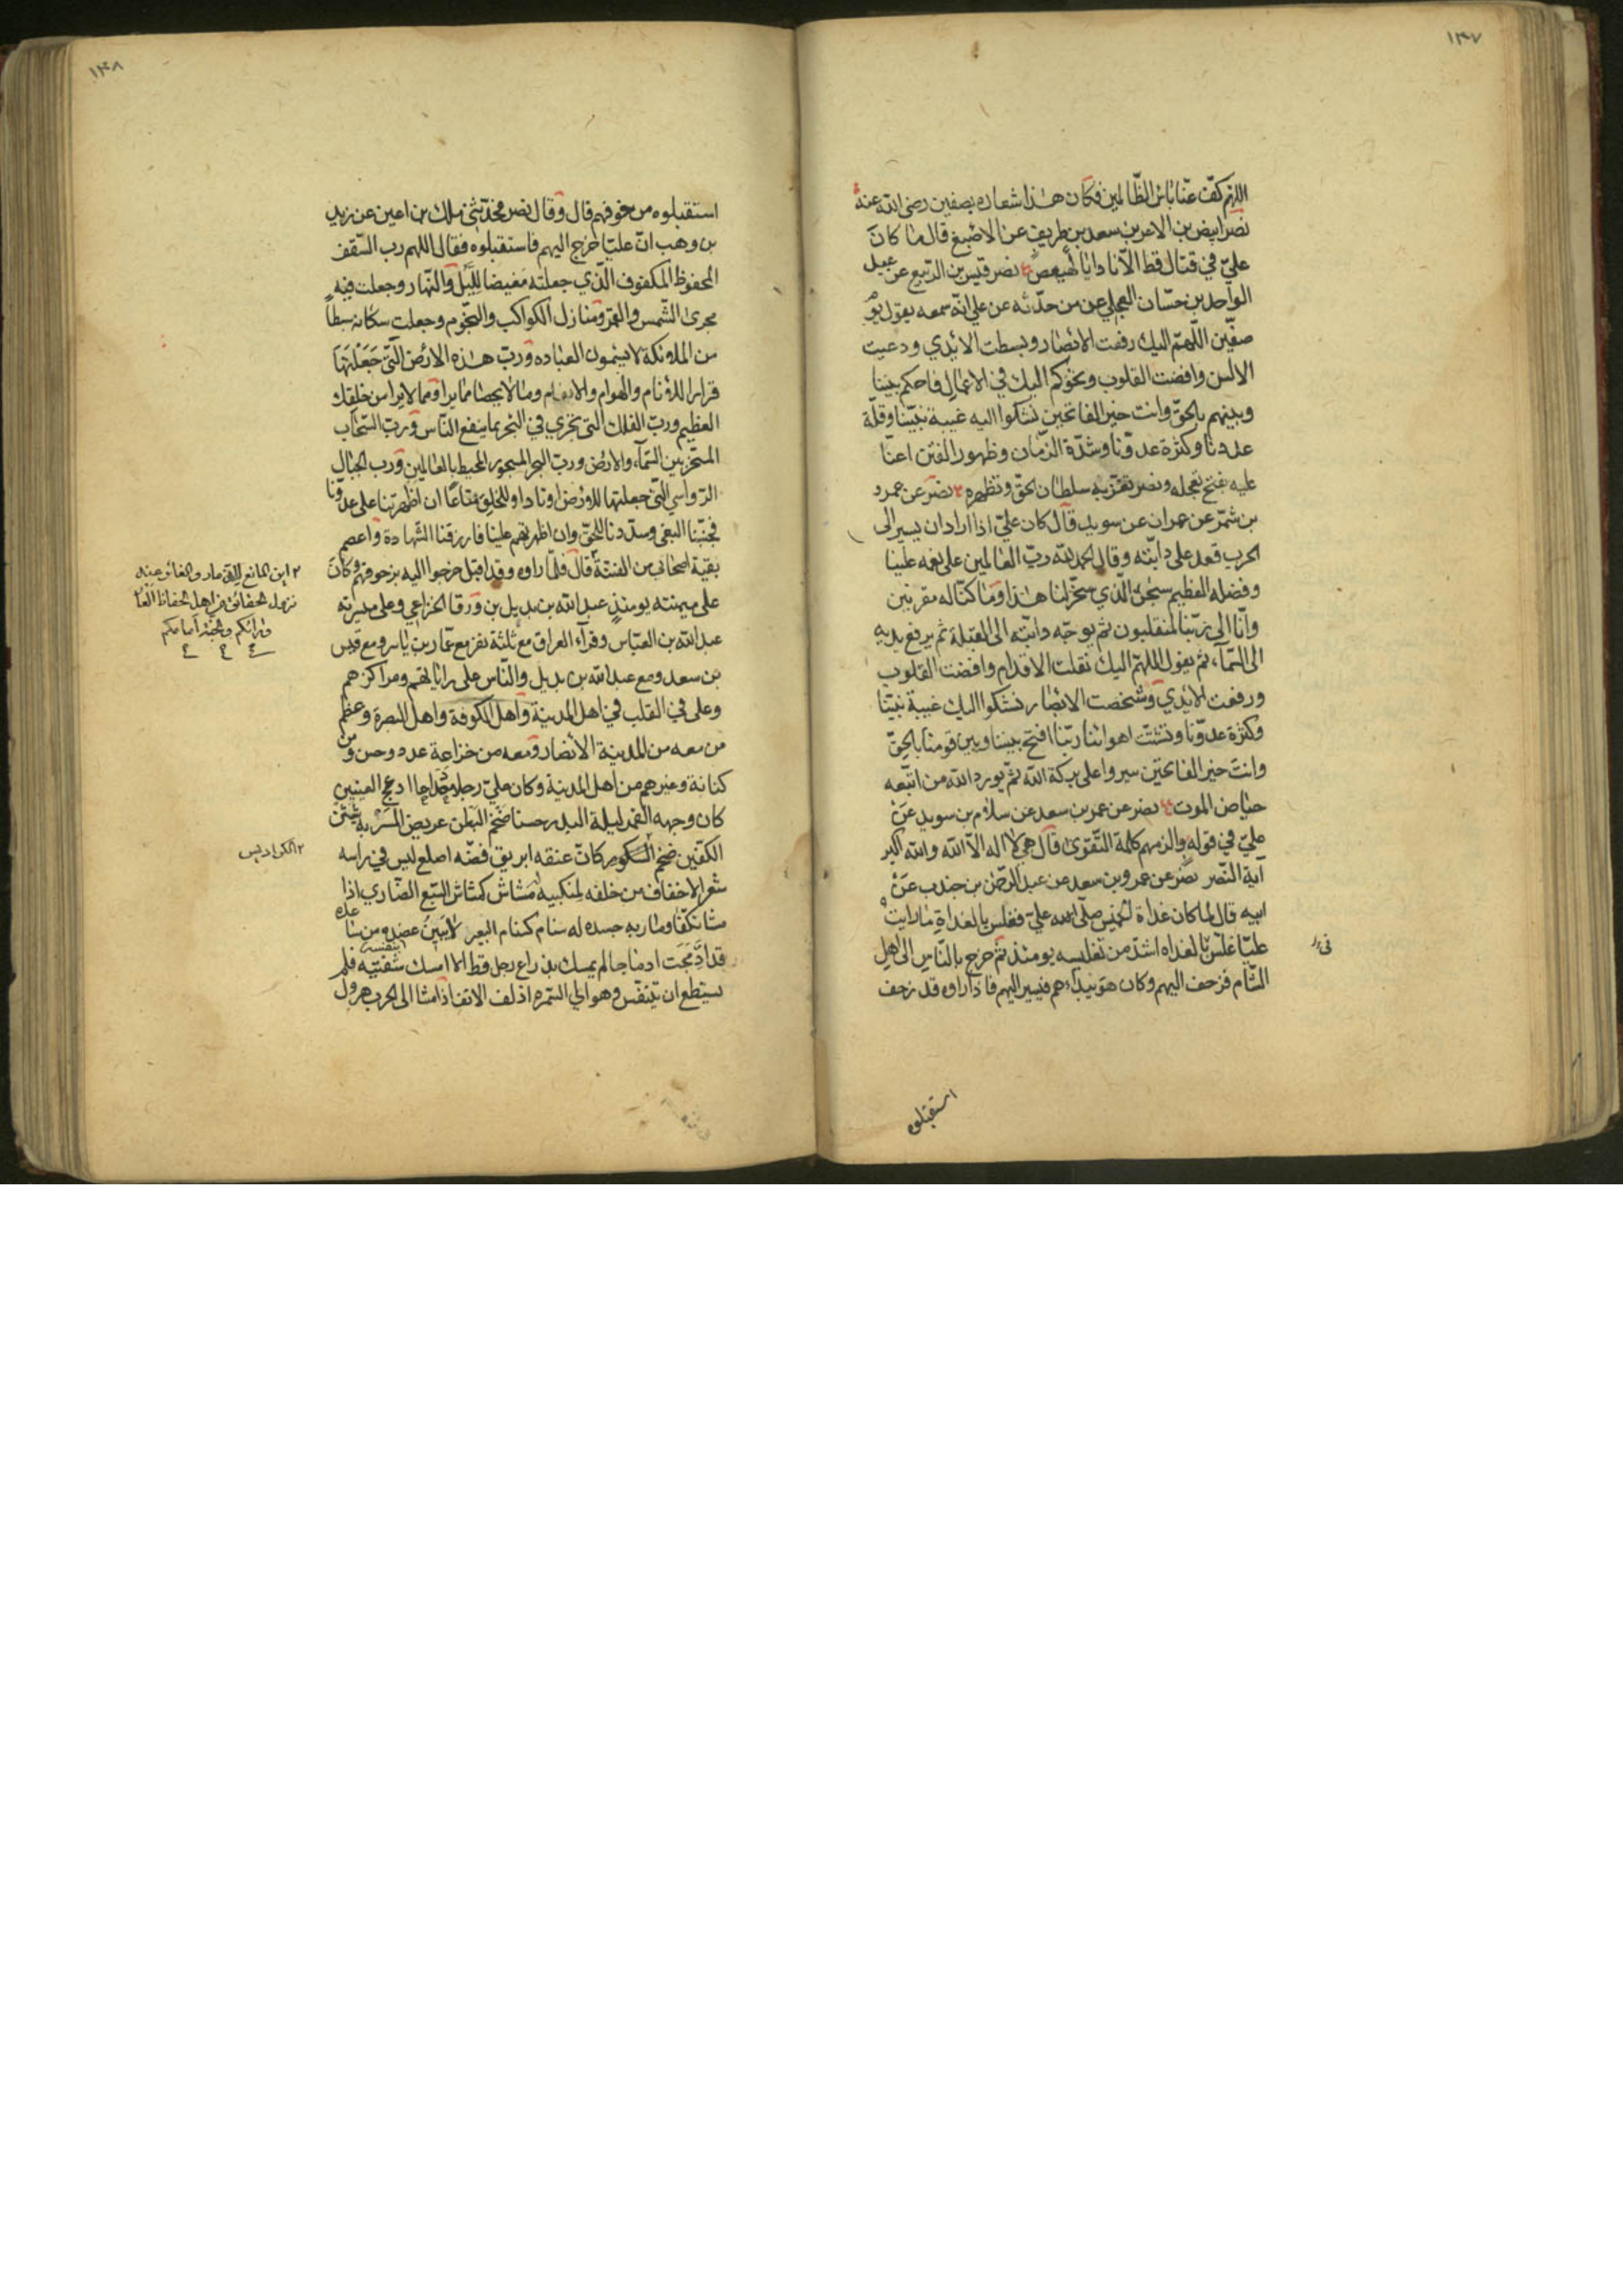 ١٣٧
اللهم كفّ عنّا باس الظّالمين فكان هذا شعاره بصفين رضى الله عنه
نصر ابيض بن الاغر بن سعد بن طريف عن الاصبغ قال ما كان
علىّ في قتال قط الّا نادا يا كهيعص نصر قيس بن الربيع عن عبد
الواحد بن حسّان العجلي عن من حدّثه عن علي انّه سمعه يقول يوم
صفّين اللّهمّ اليك رفعت الابصار وبسطت الايدي ودعيت
الالسن وافضت القلوب وتحوكم اليك في الاعمال فاحكم بيننا
وبينهم بالحقّ وانت خير الفاتحين نشكوا اليه غيبة نبيّنا وقلّة
عددنا وكثرة عدوّنا وشدّة الزّمان وظهور الفتن اعنّا
عليه بفتح تعجله ونصر تعزّ به سلطان الحقّ وتظهره نصر عن عمرو
بن شمّر عن عمران عن سويد قال كان علىّ اذا اراد ان يسير الى
الحرب قعد على دابّته وقال الحمد لله ربّ العالمين على نعمه علينا
وفضله العظيم سبحن الّذي سخّر لنا هذا وما كنّا له مقرنين
وانّا الى ربّنا لمنقلبون ثم يوجّه دابّته الى القبلة ثم يرفع يديه
الى السّمآء ثم يقول اللهمّ اليك نقلت الاقدام وافضت القلوب
ورفعت الايدي وشخصت الابصار نشكوا اليك غيبة نبيّنا
وكثرة عدوّنا وتشتّت اهوائنا ربّنا افتح بيننا وبين قومنا بالحقّ
وانت خير الفاتحين سيروا على بركة الله ثمّ يورد الله من اتبّعه
حياض الموت نصر عن عمر بن سعد عن سلام بن سويد عن
علىّ في قوله والزمهم كلمة التّقوى قال هي لا اله الّا الله والله اكبر
آية النّصر نصر عن عمرو بن سعد عن عبد الرحمن بن جندب عن
ابيه قال لما كان غداة الخميس صلّى علىّ فغلس بالغداة ما رايت
عليّا غلّس بالغداه اشدّ من تغليسه يومئذ ثمّ خرج بالنّاس الى اهل
الشّام فزحف اليهم وكان هو يبداهم فيسير اليهم فاذا راوه قد زحف
استقبلوه
١٣٨
استقبلوه من خوفهم قال وقال نصر فحدّثني ملك بن اعين عن زيد
بن وهب انّ عليّا خرج اليهم فاستقبلوه فقال اللهم رب السّقف
المحفوظ المكفوف الّذي جعلته مغيضا للّيل والنّهار وجعلت فيه
مجرى الشّمس والقمر ومنازل الكواكب والنجّوم وجعلت سكّانه سبطاً
من الملائكة لا يسئمون العباده وربّ هذه الارض الّتى جعلتها
قرارا للانام والهوام والانعام وما لا يحصا ممّا يرا وممّا لا يرا من خلقك
العظيم وربّ الفلك التى تجري في البحر بما ينفع النّاس وربّ السّحاب
المسخّر بين السّمآء والارض وربّ البحر المسجور المحيط بالعالمين ورب الجبال
الرّواسي الّتى جعلتها للارض اوتادا وللخلق متاعًا ان اظهرتنا على عدوّنا
فجنّبنا البغى وسدّدنا للحقّ وان اظهرتهم علينا فارزقنا الشّهادة واعصم
بقيّة اصحابى من الفتنة قال فلمّا راوه وقد اقبل خرجوا اليه بزحوفهم وكان
على ميمنته يومئذ عبد الله بن بديل بن ورقا الخزاعي وعلى ميسرته
عبد الله بن العبّاس وقرآء العراق مع ثلثة نفر مع عمّار بن ياسر ومع قيس
بن سعد ومع عبد الله بن بديل والنّاس على راياتهم ومراكزهم
وعلى في القلب في اهل المدينة واهل الكوفة واهل البصرة وعظم
من معه من المدينة الأنصار ومعه من خزاعة عدد وحسن ومن
كنانة وغيرهم من اهل المدينة وكان علىّ رجلا ادعج العينين
كان وجهه القمر ليلة البدر حسنا ضخم البطن عريض المسربة شثن
الكفّين ضخم الكسور كانّ عنقه ابريق فضّه اصلع ليس في راسه
شعر الا خفاف من خلفه لمنكبيه مشاش كمشاش السّبع الضّاري اذا
مشا تكفّا ومار به جسده له سنام كسنام البعير لا يبين عضده من ساعده
قد ادمجت ادماجا لم يمسك بذراع رجل قط الا امسك بنفسه فلم
يستطع ان يتنفّس وهو الى السّمره اذلف الانف اذا مشا الى الحرب هرول
الكراديس